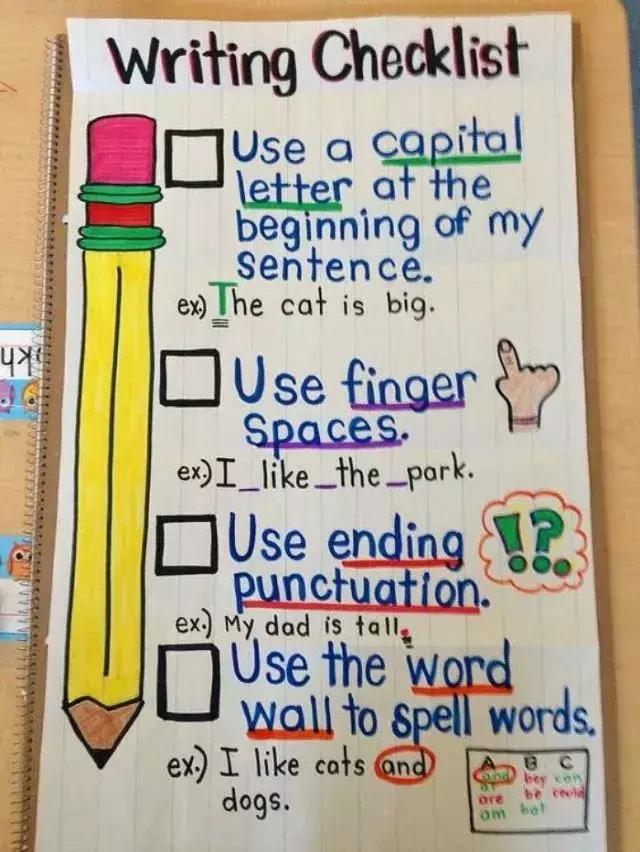 Writing Checklist
Use a capital
letter at the
beginning of my
sentence.
ex.) The cat is big.
Use finger
spaces.
ex.) I_like_the_park.
Use ending
punctuation.
!?.
ex.) My dad is tall.
Use the word
wall to spell words.
ex.) I like cats and
dogs.
A B C
and boy can
are be could
am bat